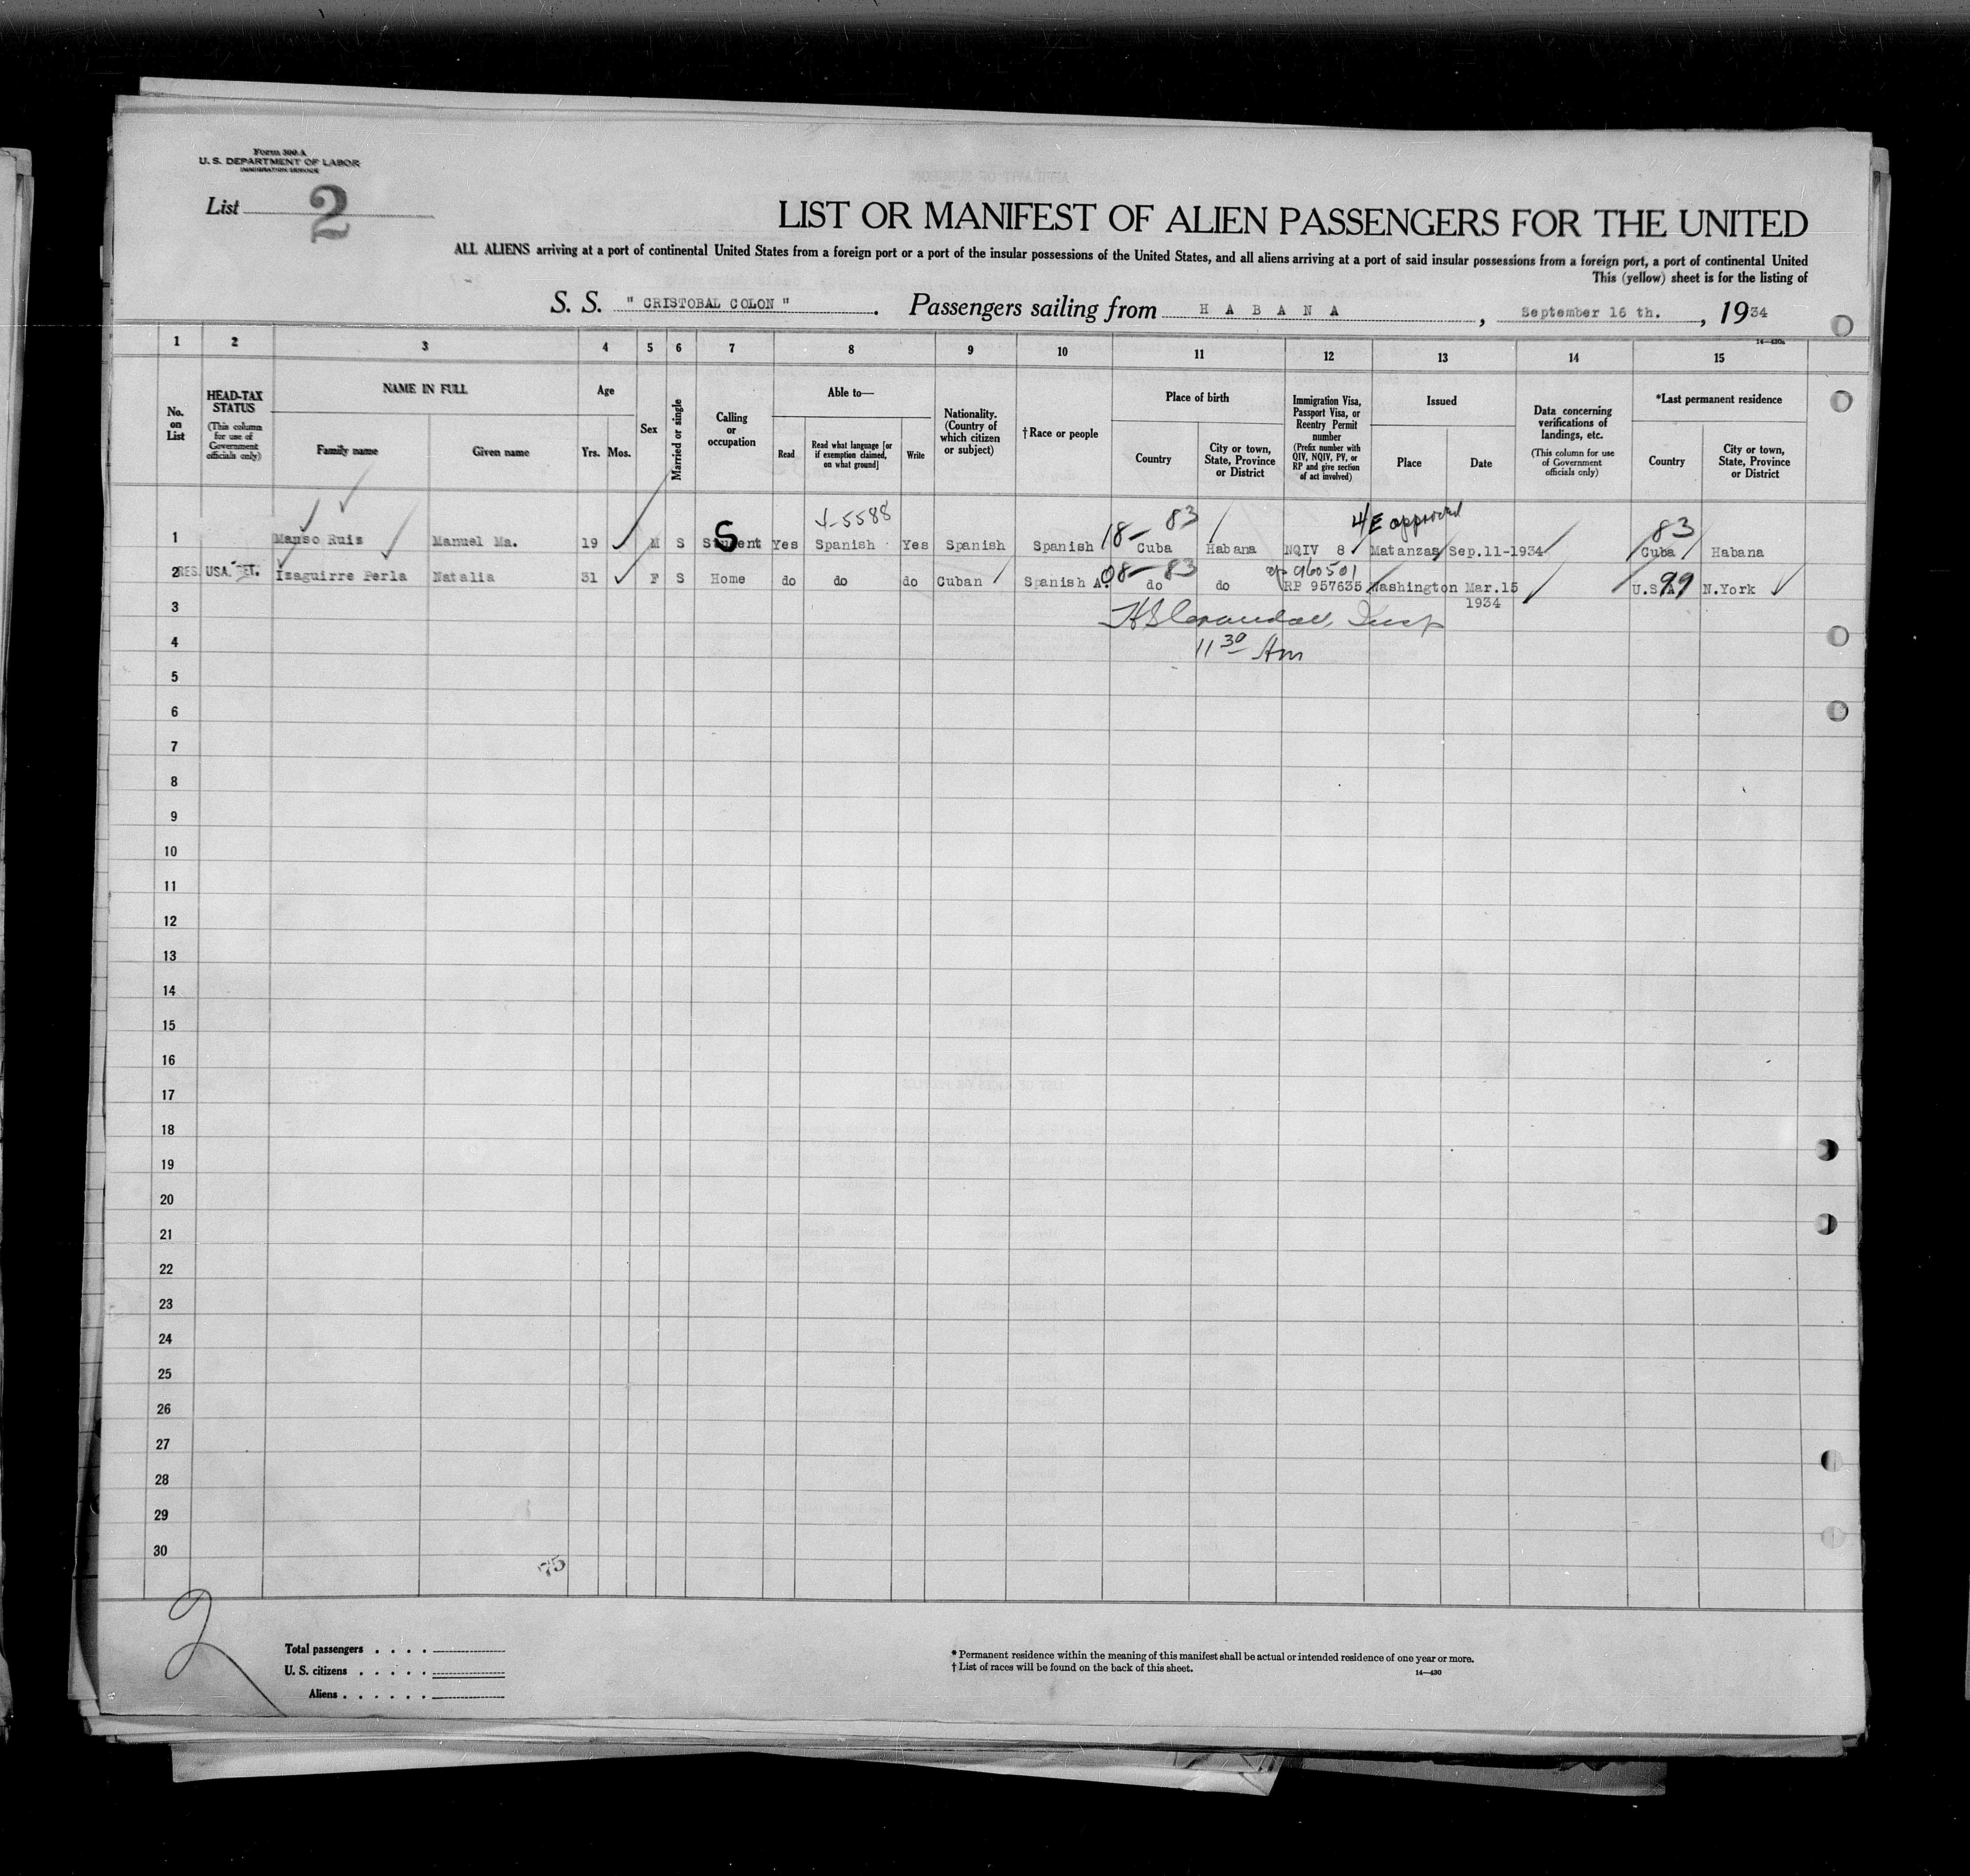 Form 500-A
U. S. DEPARTMENT OF LABOR
IMMIGRATION SERVICE
List 2
LIST OR MANIFEST OF ALIEN PASSENGERS FOR THE UNITED
ALL ALIENS arriving at a port of continental United States from a foreign port or a port of the insular possessions of the United States, and all aliens arriving at a port of said insular possessions from a foreign port, a port of continental United
This (yellow) sheet is for the listing of
S. S. " CRISTOBAL COLON " . Passengers sailing from H A B A N A , September 16 th. , 1934
14—430a
1 2 3 4 5 6 7 8 9 10 11 12 13 14 15
No. on List
HEAD-TAX STATUS (This column for use of Government officials only)
NAME IN FULL
Family name Given name
Age
Yrs. Mos.
Sex
Married or single
Calling or occupation
Able to—
Read Read what language [or if exemption claimed, on what ground] Write
Nationality. (Country of which citizen or subject)
†Race or people
Place of birth
Country City or town, State, Province or District
Immigration Visa, Passport Visa, or Reentry Permit number (Prefix number with QIV, NQIV, PV, or RP and give section of act involved)
Issued
Place Date
Data concerning verifications of landings, etc. (This column for use of Government officials only)
*Last permanent residence
Country City or town, State, Province or District
4-5588 18— 83 4E approved 83
1 Manso Ruis Manuel Ma. 19 M S Student S Yes Spanish Yes Spanish Spanish Cuba Habana NQIV 8 Matanzas Sep.11-1934 Cuba Habana
08— 83 960501 99
2 RES. USA. RET. Izaguirre Perla Natalia 31 F S Home do do do Cuban Spanish A. do do RP 957635 Washington Mar.15 1934 U.S.A. N.York
3
Insp
4
11 30 Am
5
6
7
8
9
10
11
12
13
14
15
16
17
18
19
20
21
22
23
24
25
26
27
28
29
30
75
2
Total passengers . . . .
U. S. citizens . . . . .
Aliens . . . . . .
* Permanent residence within the meaning of this manifest shall be actual or intended residence of one year or more.
† List of races will be found on the back of this sheet.
14—430